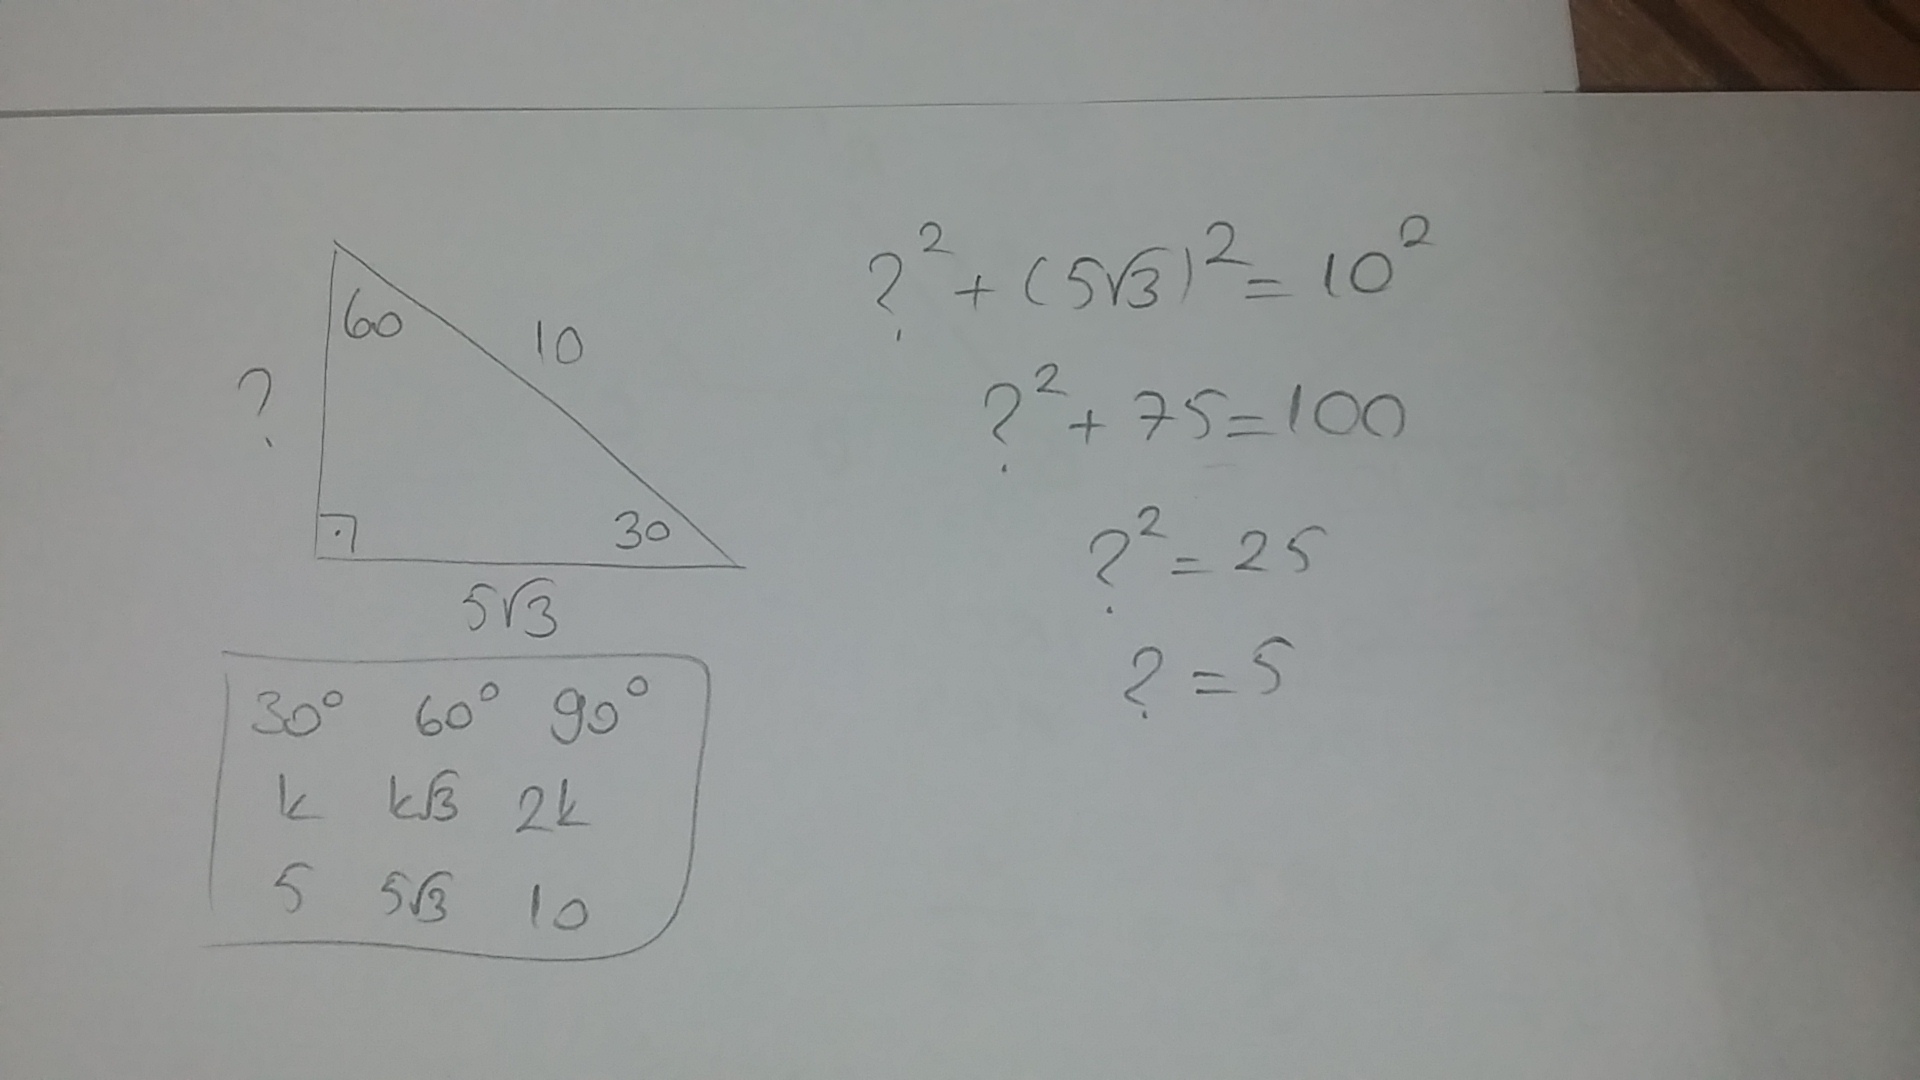 60
10
?
30
5√3
?² + (5√3)² = 10²
?² + 75 = 100
?² = 25
? = 5
30° 60° 90°
k k√3 2k
5 5√3 10